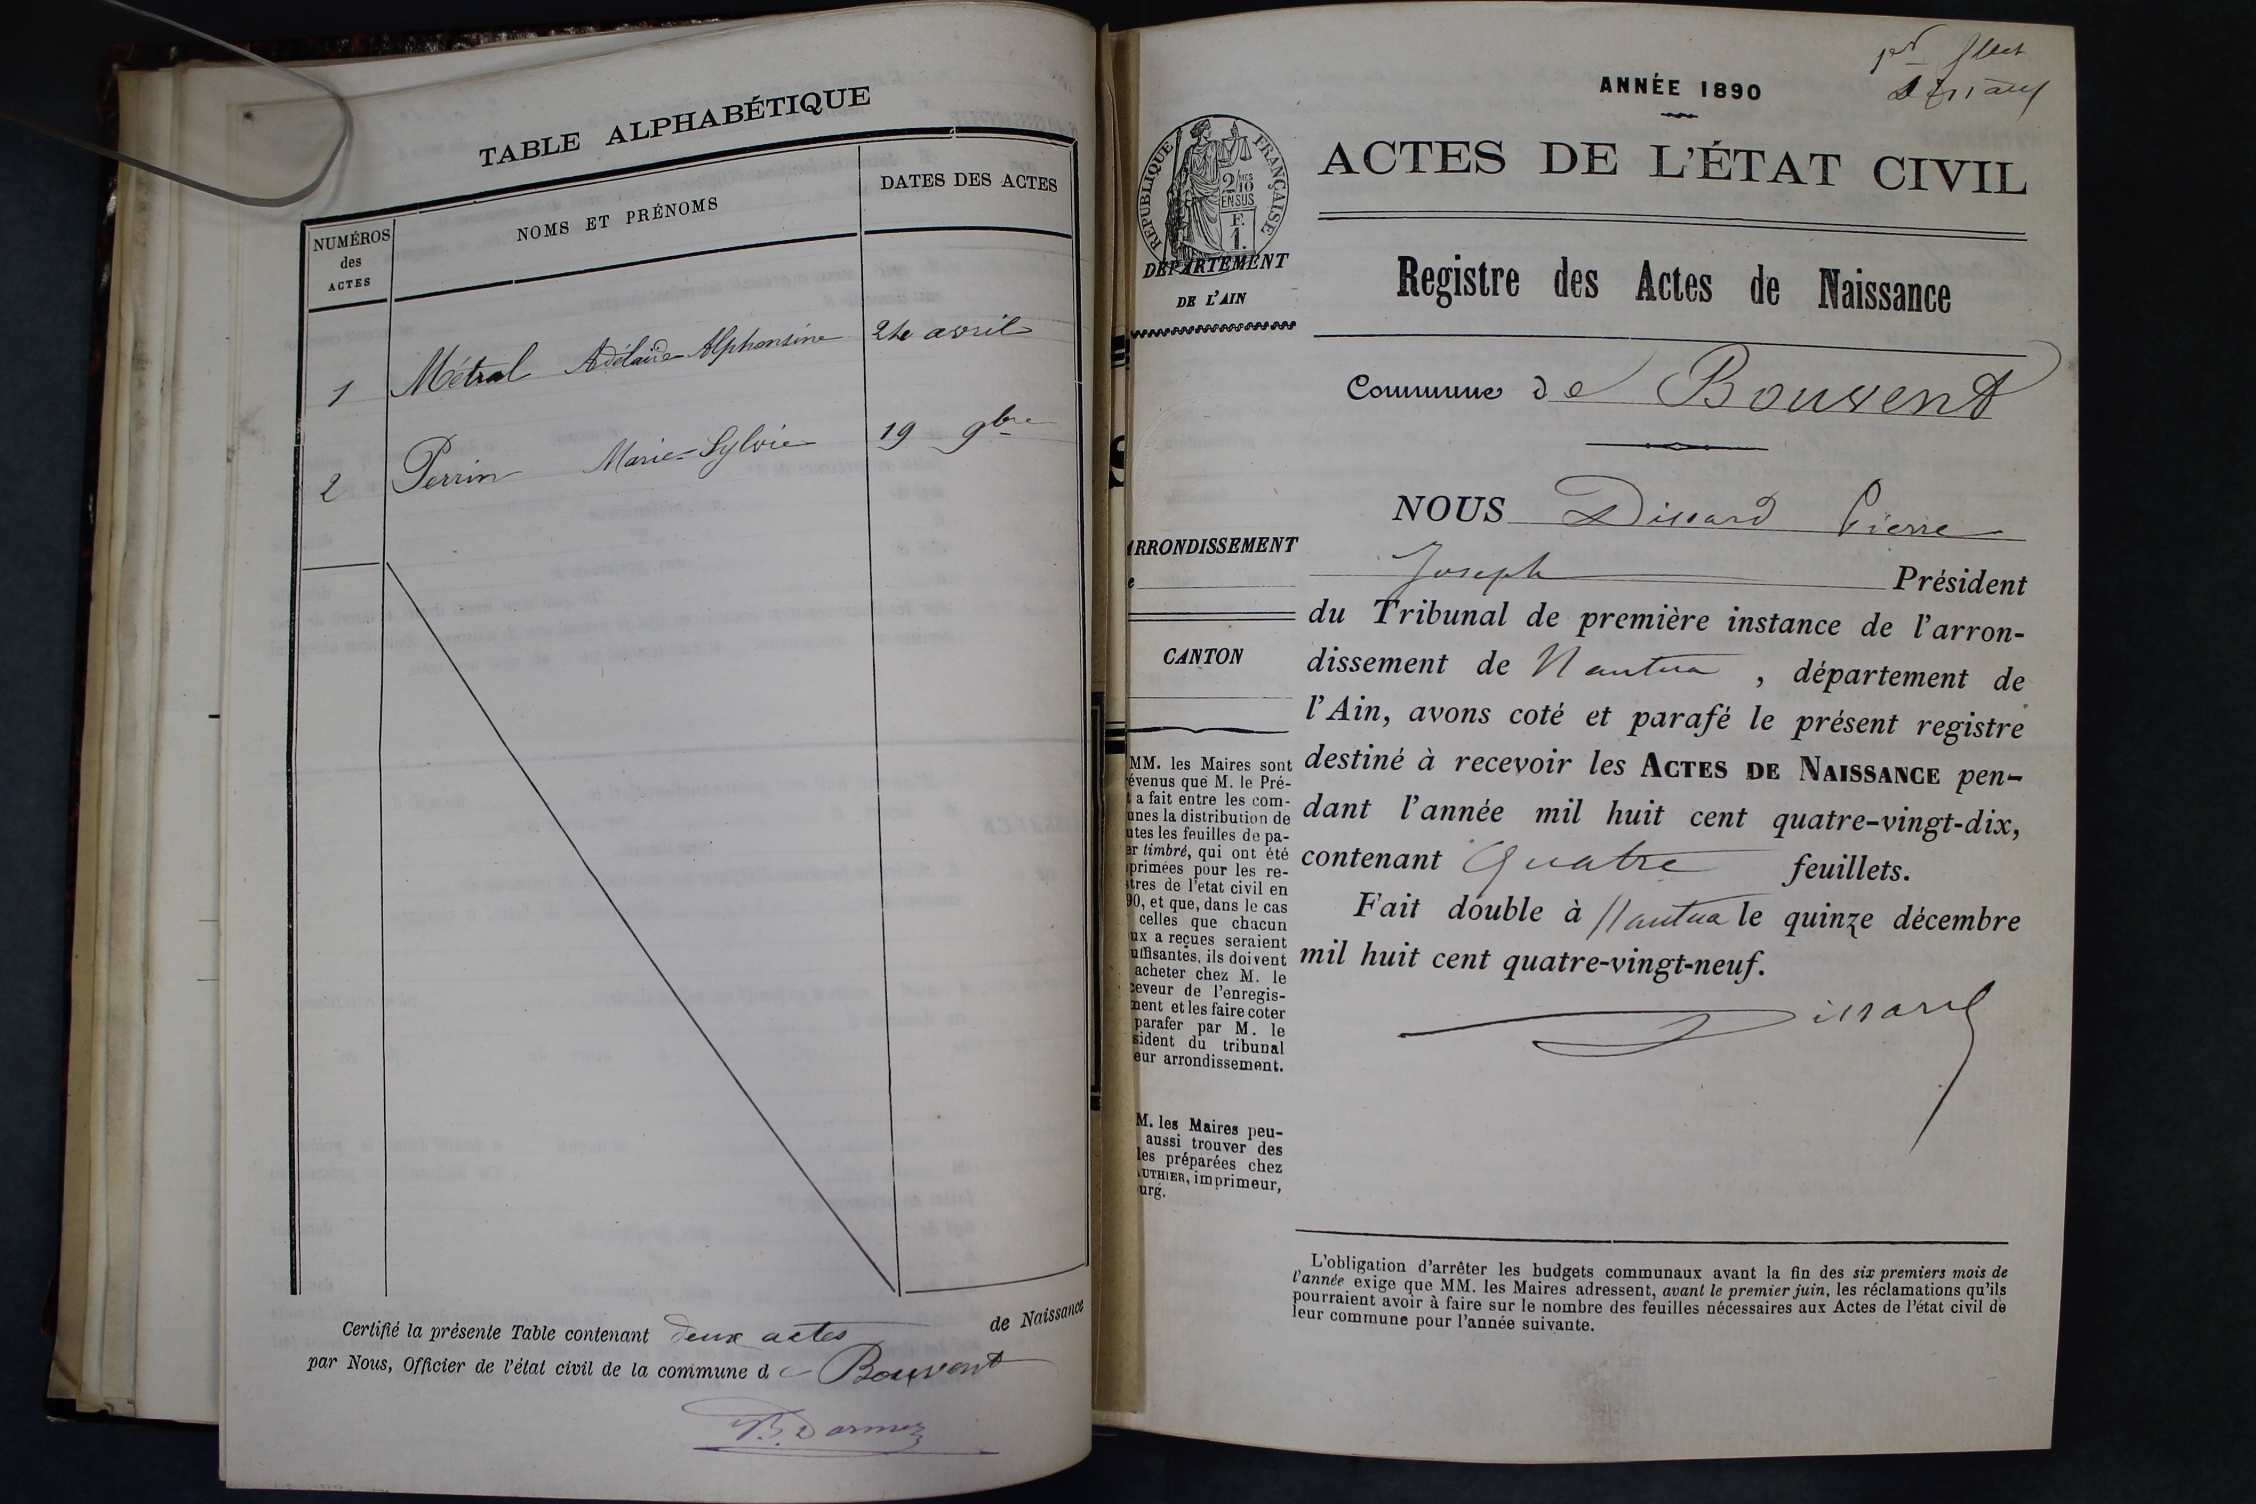 TABLE ALPHABÉTIQUE
NUMÉROS
des
ACTES
NOMS ET PRÉNOMS
DATES DES ACTES
1 Métral Adélaïde-Alphonsine avril
2 Perrin Marie-Sylvie 19 9bre
Certifié la présente Table contenant deux actes de Naissance
par Nous, Officier de l'état civil de la commune de Bouvent
ANNÉE 1890
ACTES DE L'ÉTAT CIVIL
RÉPUBLIQUE FRANÇAISE
2/10
EN SUS
F.
1.
DÉPARTEMENT
DE L'AIN
Registre des Actes de Naissance
Commune de Bouvent
NOUS Dissard Pierre
Joseph Président
du Tribunal de première instance de l'arron-
dissement de Nantua, département de
l'Ain, avons coté et parafé le présent registre
destiné à recevoir les ACTES DE NAISSANCE pen-
dant l'année mil huit cent quatre-vingt-dix,
contenant Quatre feuillets.
Fait double à Nantua le quinze décembre
mil huit cent quatre-vingt-neuf.
Dissard
RRONDISSEMENT
e
CANTON
MM. les Maires sont
révenus que M. le Pré-
t a fait entre les com-
unes la distribution de
utes les feuilles de pa-
er timbré, qui ont été
primées pour les re-
stres de l'etat civil en
90, et que, dans le cas
celles que chacun
ux a reçues seraient
uffisantes, ils doivent
acheter chez M. le
ceveur de l'enregis-
ment et les faire coter
parafer par M. le
sident du tribunal
eur arrondissement.
M. les Maires peu-
aussi trouver des
les préparées chez
UTHIER, imprimeur,
urg.
L'obligation d'arrêter les budgets communaux avant la fin des six premiers mois de
l'année exige que MM. les Maires adressent, avant le premier juin, les réclamations qu'ils
pourraient avoir à faire sur le nombre des feuilles nécessaires aux Actes de l'état civil de
leur commune pour l'année suivante.